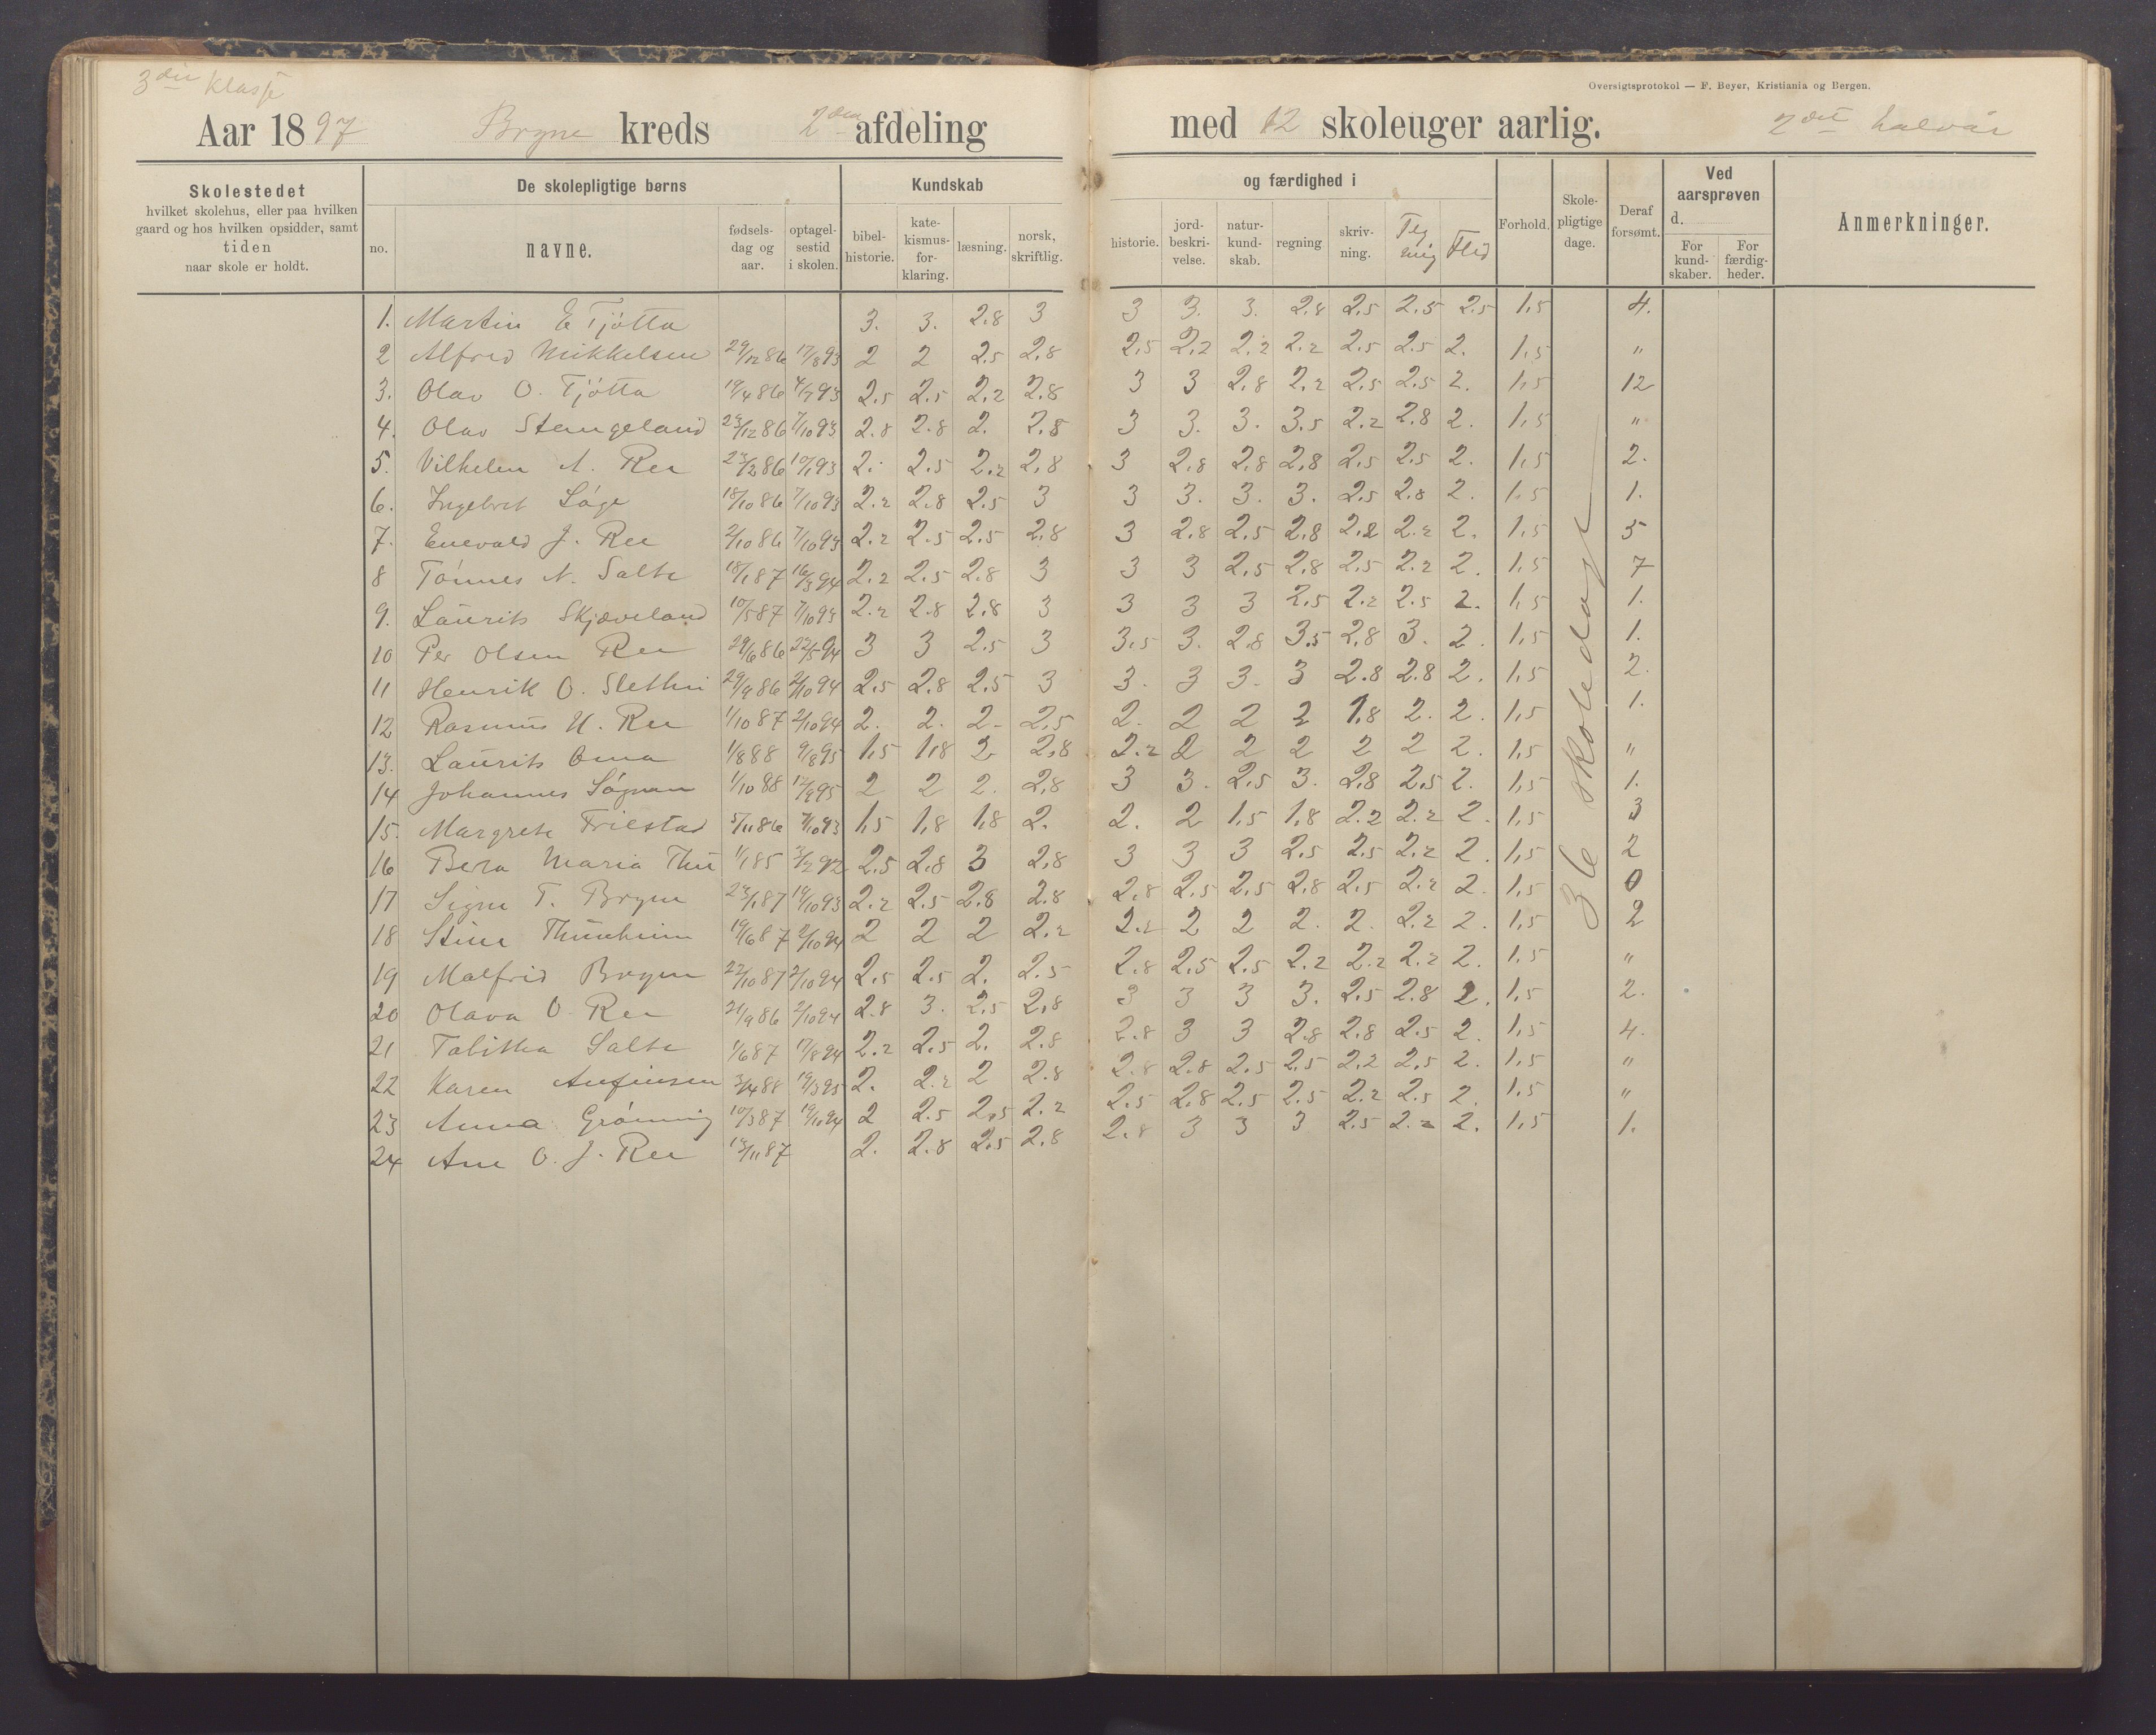 3die Klasse
Oversigtsprotokol — F. Beyer, Kristiania og Bergen.
Aar 1897 Bryne kreds 2den afdeling med 12 skoleuger aarlig. 2det halvår
Skolestedet hvilket skolehus, eller paa hvilken gaard og hos hvilken opsidder, samt tiden naar skole er holdt.
De skolepligtige børns
Kundskab og færdighed i
no. navne. fødsels-dag og aar. optagel-sestid i skolen. bibel-historie. kate-kismus-for-klaring. læsning. norsk, skriftlig. historie. jord-beskri-velse. natur-kund-skab. regning skriv-ning. Teg ning Flid Forhold. Skole-pligtige dage. Deraf forsømt. Ved aarsprøven d. For kund-skaber. For færdig-heder. Anmerkninger.
1. Martin E Tjötta 3. 3. 2.8 3 3 3. 3. 2.8 2.5 2.5 2.5 1,5 4.
2 Alfred Mikkelsen 29/12 86 17/8 93 2 2 2.5 2,8 2,5 2,2 2.2 2.2 2.5 2.5 2. 1,5 "
3. Olav O. Tjötta 19/4 86 4/7 93 2.5 2.5 2,2 2.8 3 3 2,8 2,2 2.5 2.5 2. 1,5 12
4. Olav Stangeland 23/12 86 7/10 93 2.8 2.8 2. 2.8 3 3. 3. 3.5 2.2 2.8 2. 1,5 "
5. Vilhelm A. Ree 23/2 86 10/1 93 2. 2.5 2.2 2,8 3 2.8 2.8 2,8 2.5 2.5 2. 1,5 2.
6. Ingebret Söge 18/10 86 7/10 93 2.2 2.8 2.5 3 3 3. 3. 3. 2.5 2.8 2. 1.5 1.
7. Enevald J. Ree 2/10 86 7/10 93 2.2 2.5 2.5 2,8 3 2.8 2.5 2,8 2.2 2.2 2. 1,5 5
8 Tönnes N. Salte 18/1 87 16/3 94 2.2 2.5 2.8 3 3 3 2,5 2,8 2.5 2.2 2. 1,5 7
9. Laurits Skjæveland 10/5 87 7/10 93 2.2 2.8 2.8 3 3 3 3 2,5 2.2 2.5 2. 1,5 1.
10 Per Olsen Ree 29/6 86 22/5 94 3 3 2.5 3 3,5 3. 2.8 3.5 2,8 3. 2. 1,5 1.
11 Henrik O. Slethei 29/9 86 2/10 94 2.5 2,8 2.5 3 3. 3 3. 3 2.8 2.8 2. 1,5 2.
12 Rasmus U. Ree 1/10 87 2/10 94 2. 2. 2. 2,5 2. 2 2 2 1,8 2. 2. 1,5 1.
13. Laurits Oma 1/8 88 9/8 95 1,5 1,8 2 2,8 2.2 2 2 2 2 2 2. 1,5 "
14 Johannes Sögnen 1/10 88 12/9 95 2 2 2. 2,8 3 3. 2.5 3. 2.8 2.5 2. 1,5 1.
15. Margrete Friestad 5/11 86 7/10 93 1,5 1,8 1,8 2. 2. 2 1,5 1,8 2.2 2.2 2. 1,5 3
16 Bera Maria Thu 1/1 85 3/2 92 2.5 2.8 3 2,8 3 3 3 2.5 2.5 2.2 2. 1,5 2
17 Signe T. Bryne 23/1 87 19/10 93 2.2 2.5 2.8 2.8 2.8 2.5 2.5 2.8 2.5 2.2 2. 1,5 0
18 Stine Thunheim 19/6 87 2/10 94 2 2 2 2.2 2.2 2 2 2. 2. 2.2 2. 1,5 2
19 Malfrid Bryne 22/10 87 2/10 94 2.5 2.5 2. 2.5 2.8 2.5 2.5 2.2 2.2 2.2 2. 1,5 "
20 Olava O. Ree 21/9 86 2/10 94 2.8 3. 2,5 2,8 3 3 3 3. 2.5 2.8 2. 1,5 2.
21 Tabitha Salte 1/6 87 17/8 94 2.2 2.5 2. 2.8 2.8 3 3 2.8 2.8 2.5 2. 1,5 4.
22 Karen Anfinsen 3/4 88 19/3 95 2. 2.2 2 2.8 2.8 2.8 2.5 2.5 2.2 2.5 2. 1,5 "
23 Anna Grönning 10/3 87 19/10 94 2 2.5 2,5 2.2 2.5 2.8 2.5 2.5 2.2 2.5 2. 1,5 "
24 Ane O. J. Ree 13/11 87 2. 2.8 2.5 2.8 2.8 3 3 3 2.5 2.2 2. 1,5 1.
36 skoledage